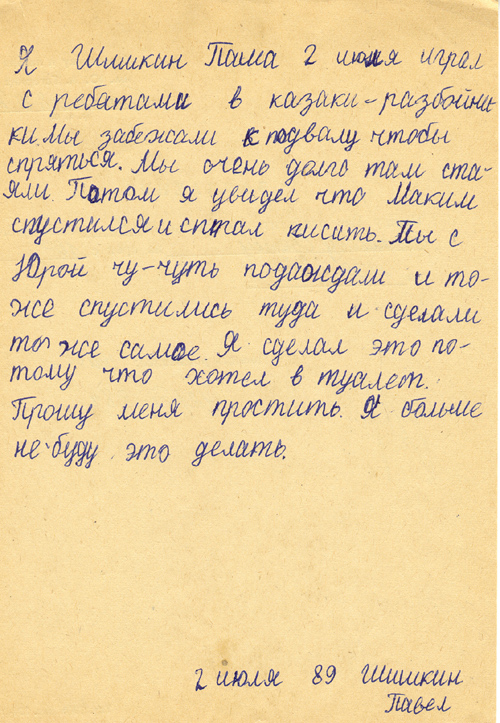 Я Шишкин Паша 2 июля играл
с ребятами в казаки-разбойни-
ки. Мы забежали к подвалу чтобы
спряться. Мы очень долго там ста-
яли. Потом я увидел что Маким
спустился и сптал писить. Мы с
Юрой чу-чуть подаождали и то-
же спустились туда и сделали
то же самое. Я сделал это по-
тому что хотел в туалет.
Прошу меня простить. Я больше
не буду это делать.
2 июля 89 Шишкин
Павел